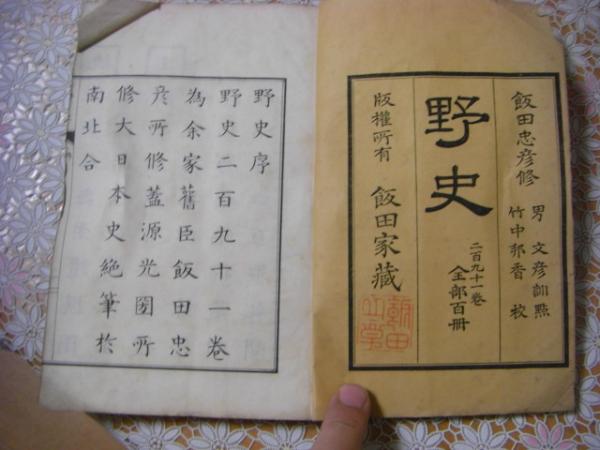 飯田忠彦修
男 文彦訓點
竹中邦香 校
野史
二百九十一卷
全部百冊
版權所有 飯田家藏
野史序
野史二百九十一卷
為余家舊臣飯田忠
彦所修蓋源光圀所
修大日本史絶筆於
南北合